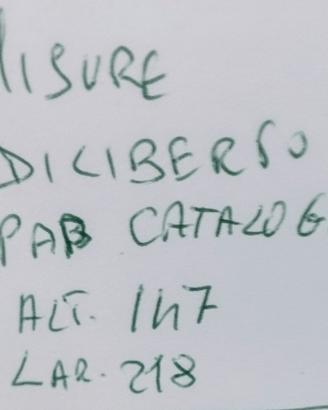 MISURE
DILIBERSO
PAB CATALOG
ALT. 147
LAR. 218